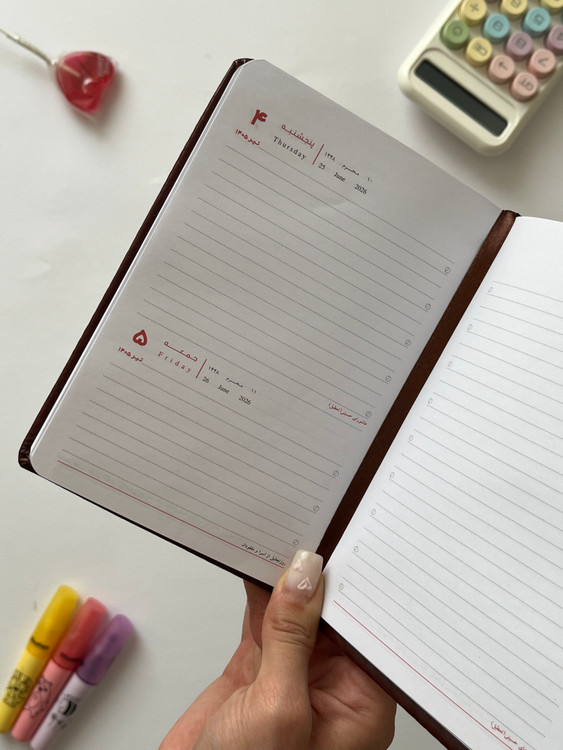 ۴
پنجشنبه
۱۰ محرم ۱۴۴۸
تیر ۱۴۰۵
Thursday
25 June 2026
۵
جمعه
۱۱ محرم ۱۴۴۸
تیر ۱۴۰۵
Friday
26 June 2026
عاشورای حسینی (تعطیل)